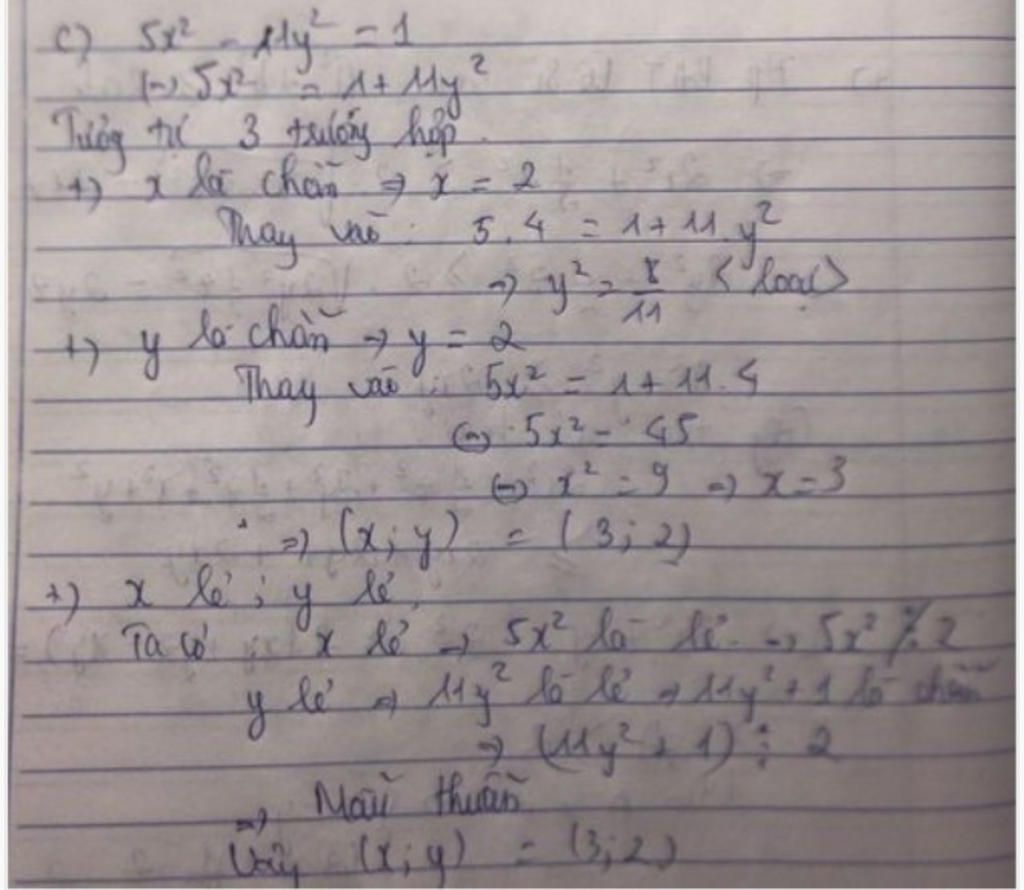 c) 5x² - 11y² = 1
(=) 5x² = 1 + 11y²
Tương tự 3 trường hợp.
+) x là chẵn => x = 2
Thay vào: 5.4 = 1 + 11.y²
=> y² = 8/11 <loại>
+) y là chẵn => y = 2
Thay vào: 5x² = 1 + 11.4
(=) 5x² = 45
(=) x² = 9 => x = 3
=> (x; y) = (3; 2)
+) x lẻ; y lẻ,
Ta có: x lẻ => 5x² là lẻ => 5x² ⋮̸ 2
y lẻ => 11y² là lẻ => 11y² + 1 là chẵn
=> (11y² + 1) ⋮ 2
=> Mâu thuẫn
Vậy (x; y) = (3; 2)